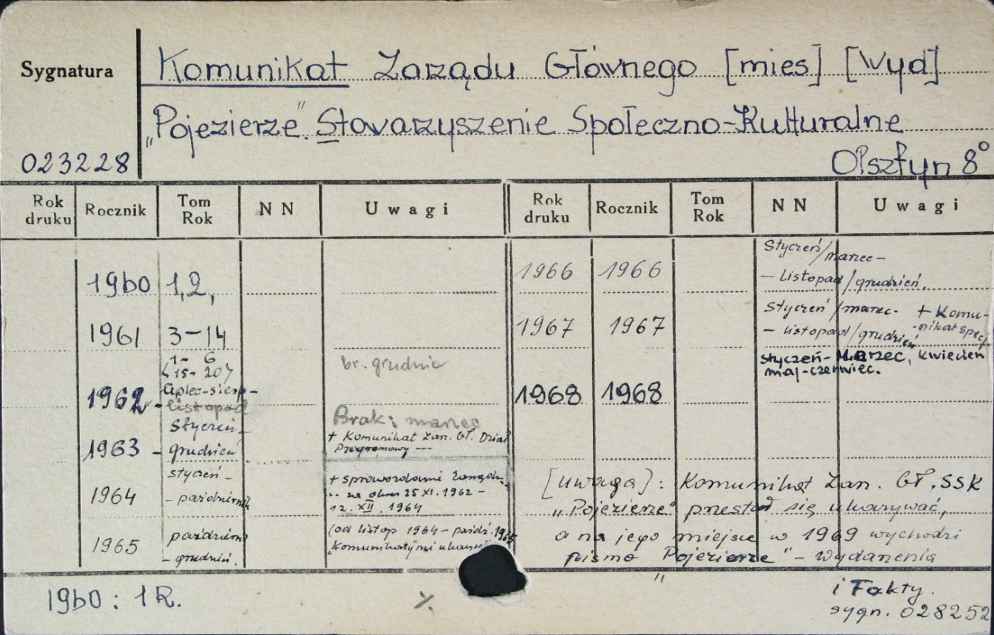 Sygnatura
Komunikat Zarządu Głównego [mies] [Wyd]
„Pojezierze" Stowarzyszenie Społeczno-Kulturalne
023228
Olsztyn 8°
Rok druku Rocznik Tom Rok NN Uwagi Rok druku Rocznik Tom Rok NN Uwagi
1960 1,2,
1961 3-14
1- 6
(15- 20)
br. grudnia
1962 - lipiec-sierp-
listopad
Brak: marzec
1963 - Styczeń-
grudzień
+ Komunikat Zarz. Gł. Dział
Programowy
1964 styczeń-
- październik
+ sprawozdanie Zarządu
za okres 25 XI. 1962 -
12. XII. 1964
1965 październ
- grudzień.
(od listop 1964 - paźdz. 1965
"Komunikaty" nie ukazał
1966 1966 Styczeń/marzec-
- Listopad/grudzień.
1967 1967 Styczeń/marzec- + Komu-
- listopad/grudzień nikat spec
1968 1968 styczeń-Marzec, kwiecień
maj-czerwiec.
[uwaga]: Komunikat Zarz. Gł. SSK
„Pojezierze" przestał się ukazywać,
a na jego miejsce w 1969 wychodzi
pismo "Pojezierze" - Wydarzenia
i Fakty.
sygn. 028252
1960: 1R.